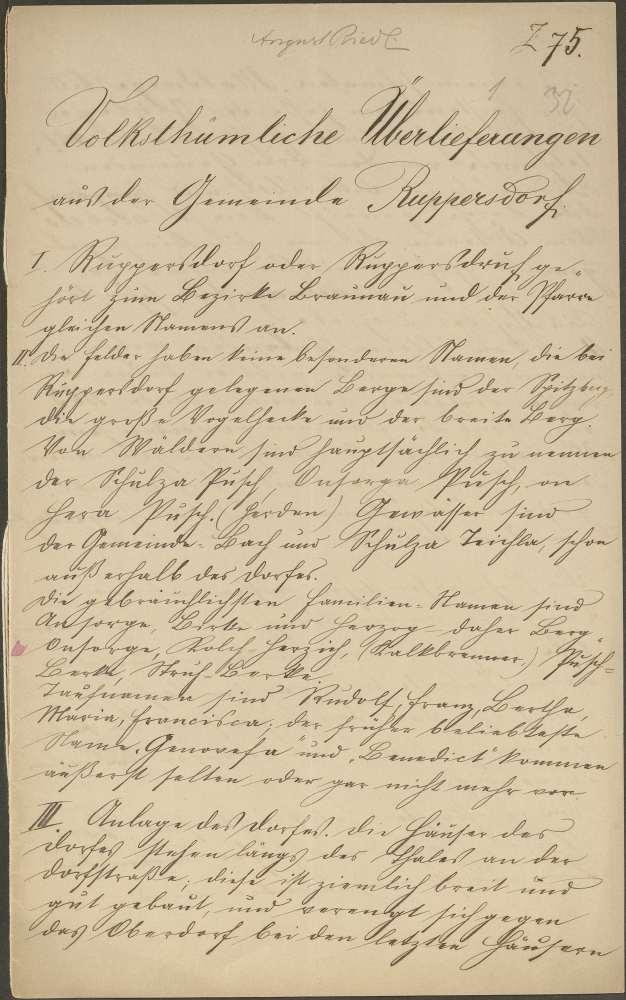 August Riedl
Z 75.
1
32
Volksthümliche Überlieferungen
aus der Gemeinde Ruppersdorf.
I. Ruppersdorf oder Ruppersdruf ge-
hört zum Bezirke Braunau und der Pfarre
gleichen Namens an.
II. Die Felder haben keine besonderen Namen, die bei
Ruppersdorf gelegenen Berge sind der Spitzberg,
die große Vogelhecke und der breite Berg.
Von Wäldern sind hauptsächlich zu nennen
der Schulza Pusch, Onsorga Pusch, on
Hera Pusch. (Herden) Gewässer sind
der Gemeinde-Bach und Schulza Teichla, schon
außerhalb des Dorfes.
Die gebräuchlichsten Familien-Namen sind
Ansorge, Birke und Herzog daher Berg-
Onsorge, Kolch-Herzich, (Kalkbrenner) Pusch-
Berke, Struf-Berke.
Taufnamen sind Rudolf, Franz, Bertha,
Maria, Francisca; der früher beliebteste
Name „Genovefa" und „Benedict" kommen
äußerst selten oder gar nicht mehr vor.
III. Anlage des Dorfes. Die Häuser des
Dorfes stehen längs des Thales an der
Dorfstraße; diese ist ziemlich breit und
gut gebaut, und verengt sich gegen
das Oberdorf bei den letzten Häusern